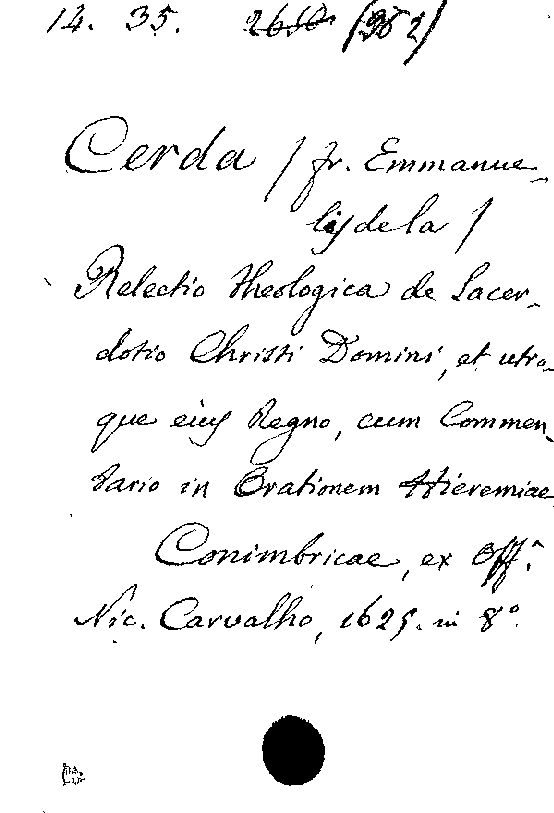 14. 35. 2650 (352)
Cerda / fr. Emmanue-
lis de la /
Relectio theologica de Sacer-
dotio Christi Domini, et utro-
que eius Regno, cum Commen-
tario in Orationem Hieremiae
Conimbricae, ex Off.ª
Nic. Carvalho, 1625. in 8º.